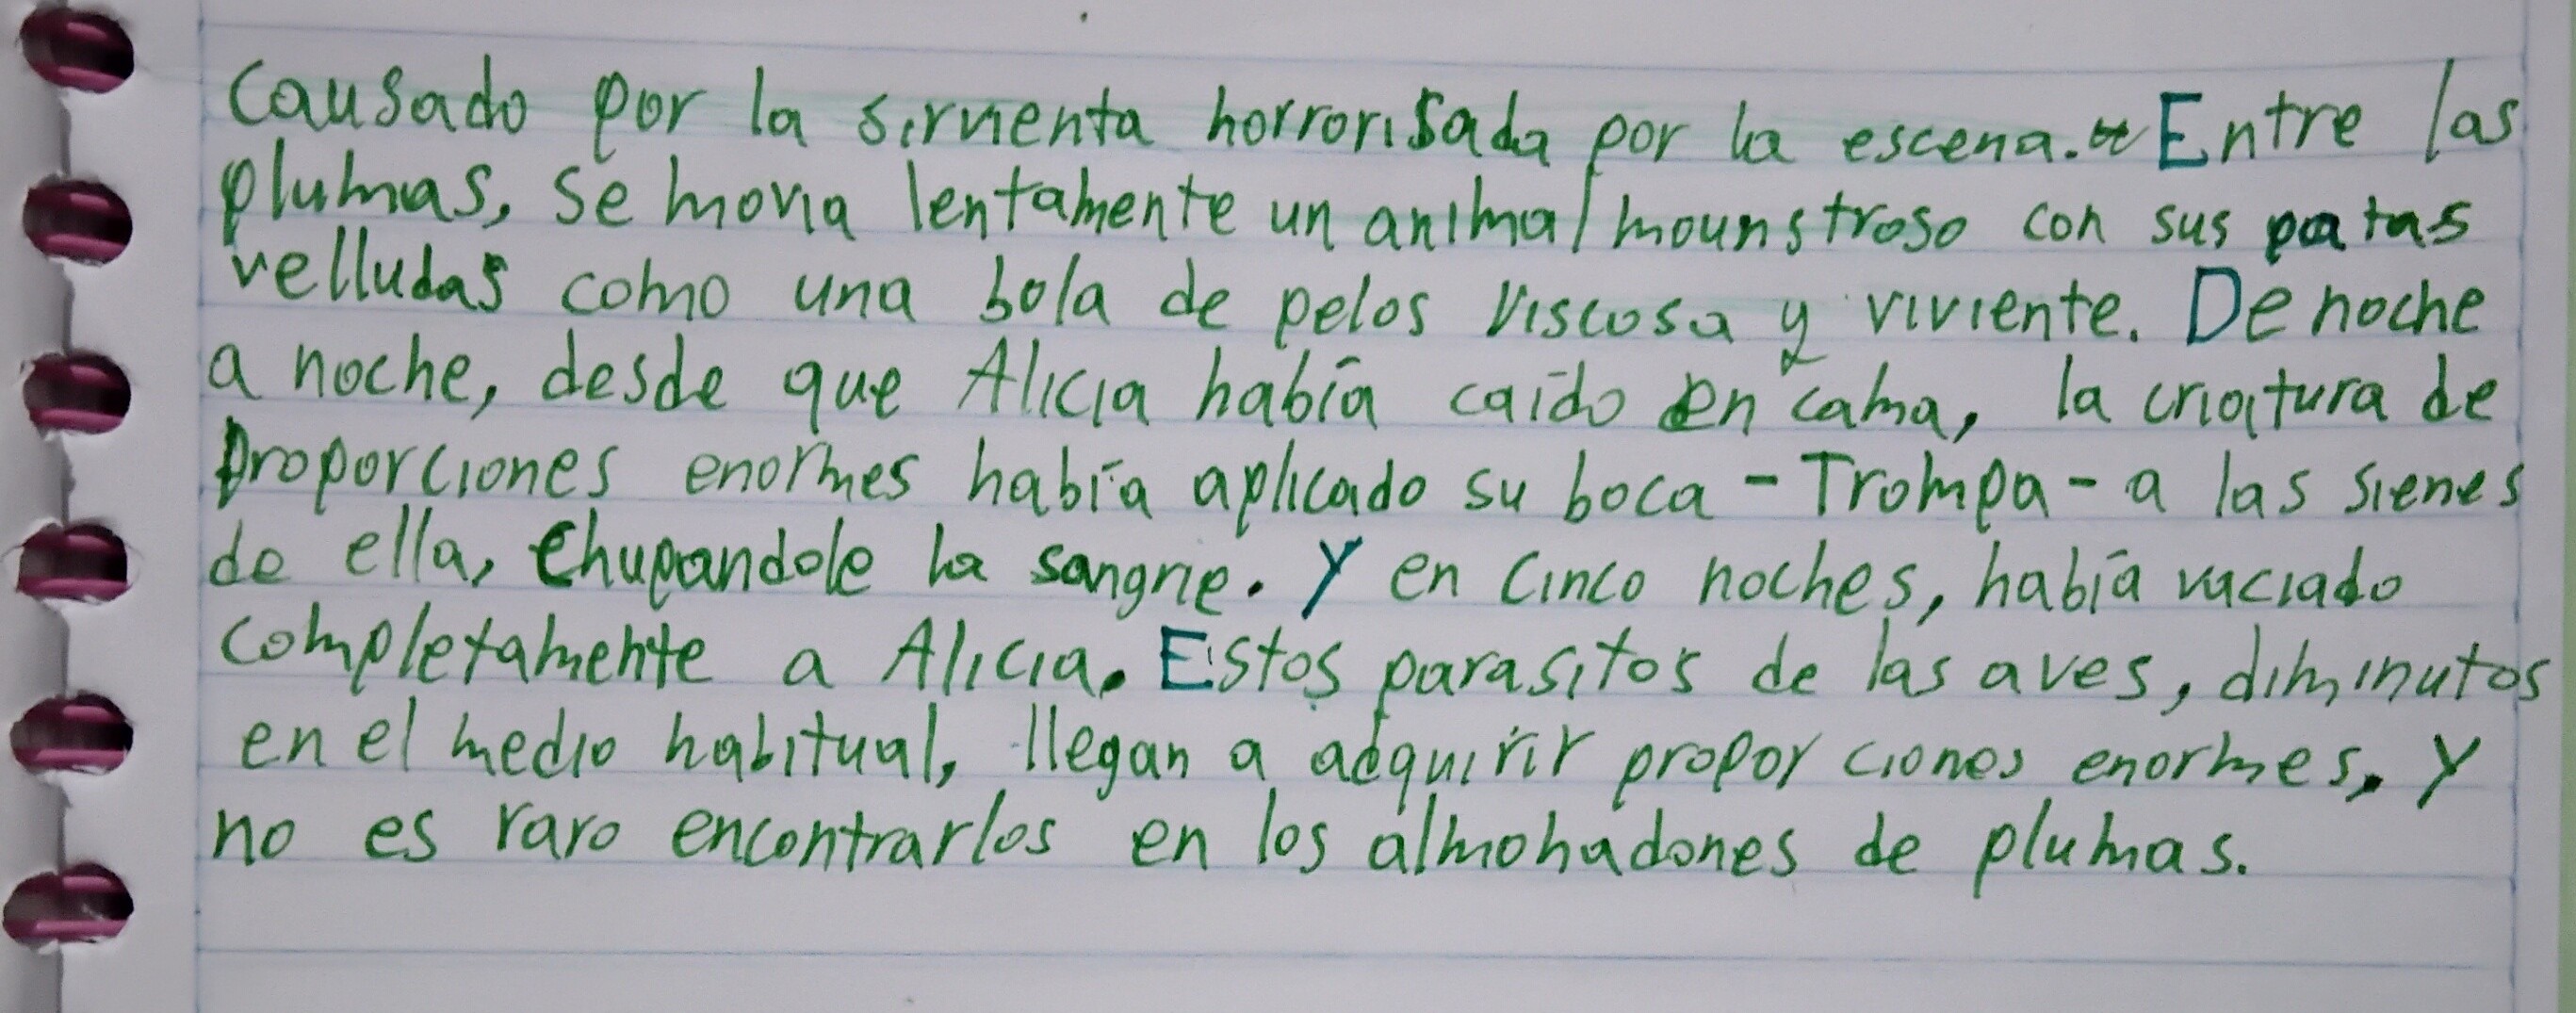 causado por la sirvienta horrorisada por la escena. Entre las
plumas, se movia lentamente un animal mounstroso con sus patas
velludas como una bola de pelos viscosa y viviente. De noche
a noche, desde que Alicia había caído en cama, la criatura de
proporciones enormes había aplicado su boca - Trompa - a las sienes
de ella, chupandole la sangre. Y en cinco noches, había vaciado
completamente a Alicia. Estos parasitos de las aves, diminutos
en el medio habitual, llegan a adquirir proporciones enormes, y
no es raro encontrarlos en los almohadones de plumas.